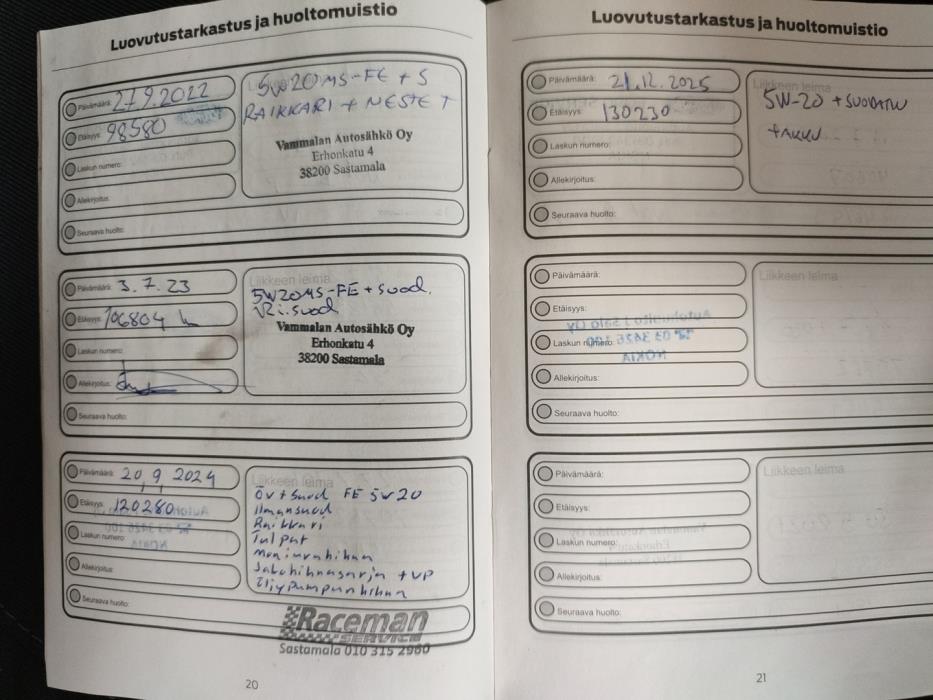 Luovutustarkastus ja huoltomuistio
Päivämäärä: 27.9.2022
Etäisyys: 98580
Laskun numero:
Allekirjoitus:
Seuraava huolto:
5W20MS-FE + S
RAIKKARI + NESTET
Vammalan Autosähkö Oy
Erhonkatu 4
38200 Sastamala
Päivämäärä: 3.7.23
Etäisyys: 106804
Laskun numero:
Allekirjoitus:
Seuraava huolto:
Liikkeen leima
5W20MS-FE + suod.
Vammalan Autosähkö Oy
Erhonkatu 4
38200 Sastamala
Päivämäärä: 20.9.2024
Etäisyys: 120280
Laskun numero:
Allekirjoitus:
Seuraava huolto:
Liikkeen leima
Öv + suod FE 5w20
Ilmansuod
Raikkari
Tulpat
Moniurahihna
Jakohihnasarja + VP
Öljypumpunhihna
Raceman
SERVICE
Sastamala 010 315 2980
20
Luovutustarkastus ja huoltomuistio
Päivämäärä: 21.12.2025
Etäisyys: 130230
Laskun numero:
Allekirjoitus:
Seuraava huolto:
Liikkeen leima
5W-20 + SUODATIN
+AKKU
Päivämäärä:
Etäisyys:
Laskun numero:
Allekirjoitus:
Seuraava huolto:
Liikkeen leima
Päivämäärä:
Etäisyys:
Laskun numero:
Allekirjoitus:
Seuraava huolto:
Liikkeen leima
21